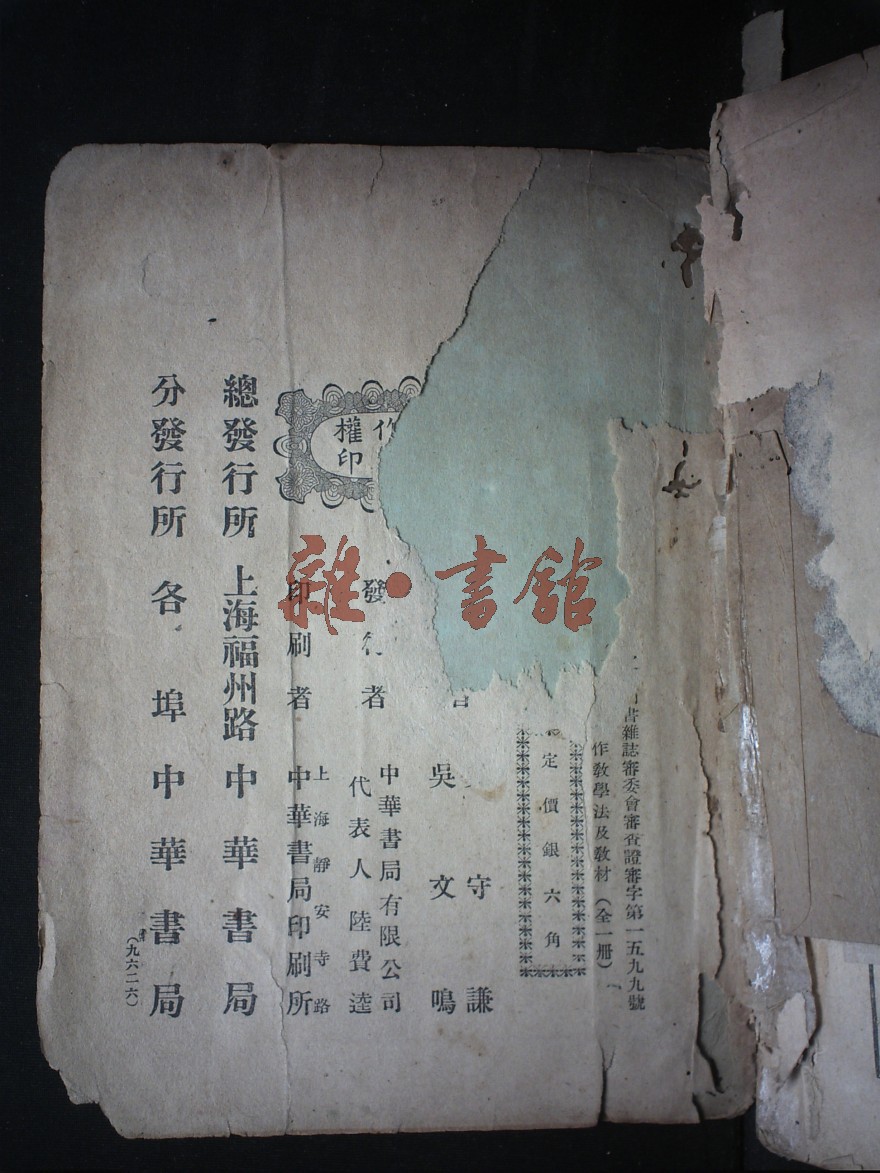 書雜誌審委會審查證審字第一五九九號
作教學法及教材（全一册）
定價銀六角
守謙
吳文鳴
發行者
中華書局有限公司
代表人陸費逵
印刷者
上海靜安寺路
中華書局印刷所
權印
總發行所 上海福州路 中華書局
分發行所 各埠中華書局
（九六二六）
雜·書館